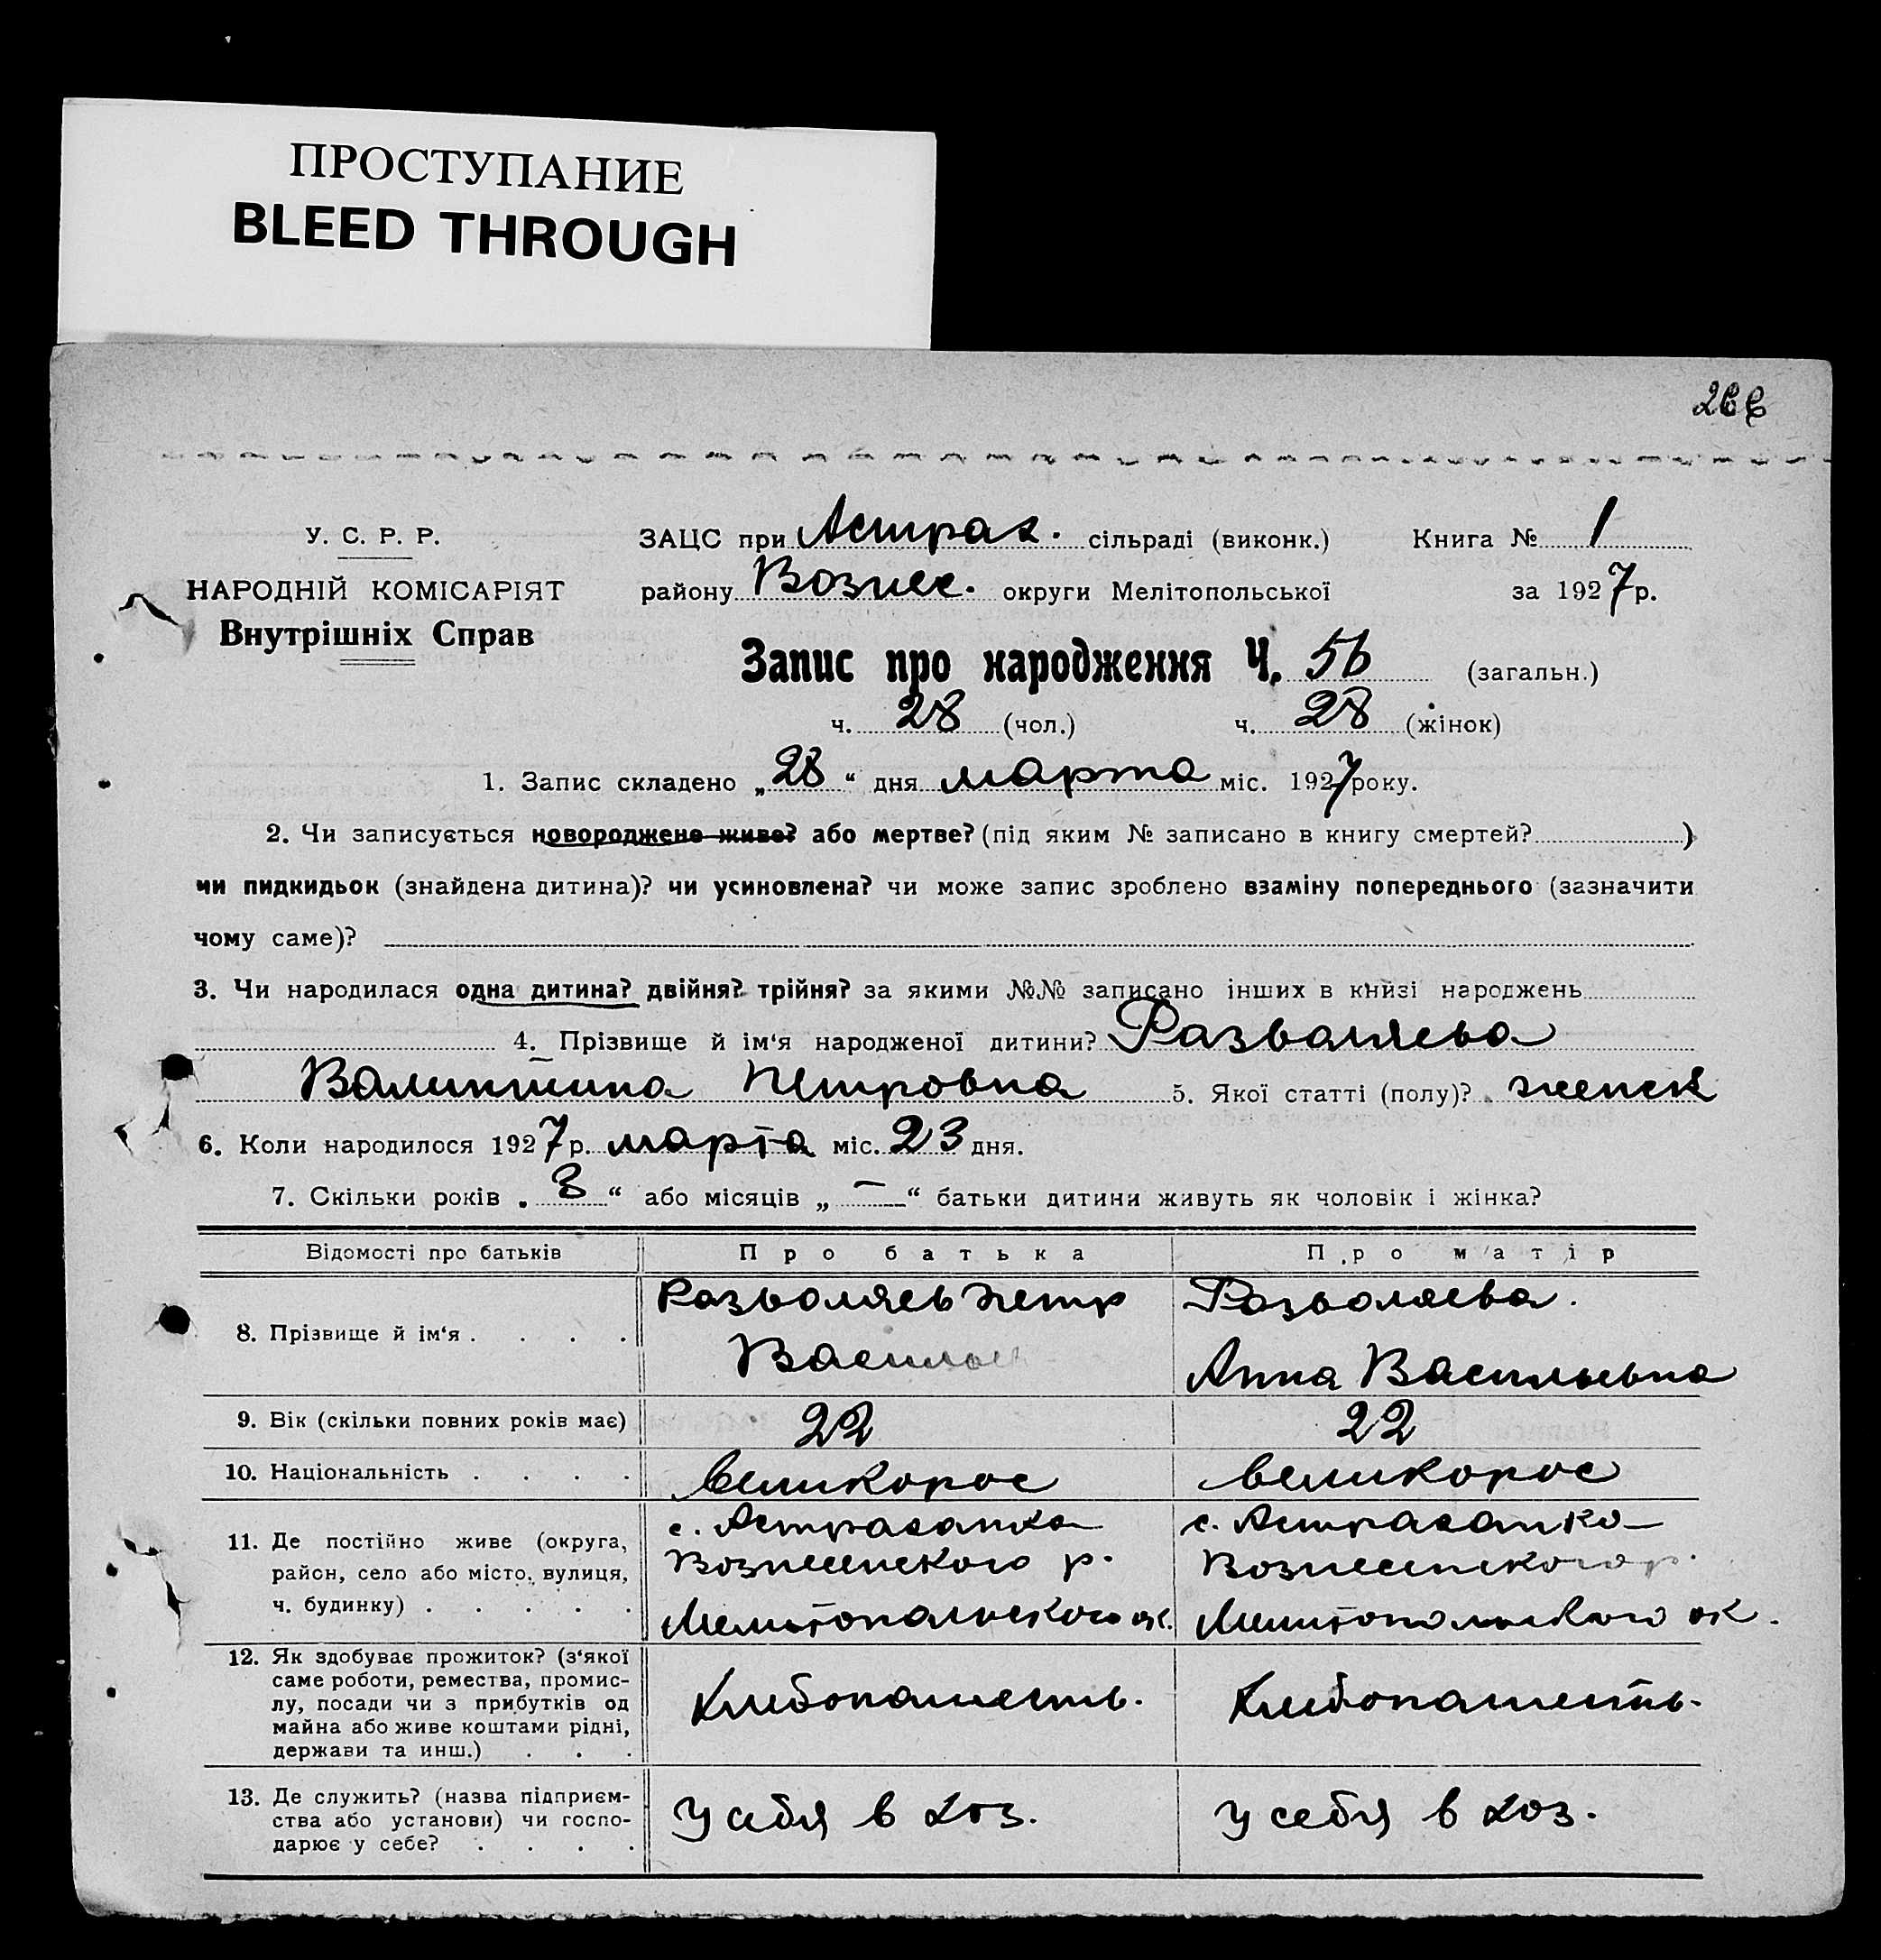 ПРОСТУПАНИЕ
BLEED THROUGH
У. С. Р. Р.
НАРОДНІЙ КОМІСАРІЯТ
Внутрішніх Справ
ЗАЦС при Астрах. сільраді (виконк.) Книга № 1
району Вознес. округи Мелітопольської за 1927 р.
Запис про народження Ч. 56 (загальн.)
ч. 28 (чол.) ч. 28 (жінок)
1. Запис складено „28“ дня марта міс. 1927 року.
2. Чи записується новороджене живе? або мертве? (під яким № записано в книгу смертей? )
чи пидкидьок (знайдена дитина)? чи усиновлена? чи може запис зроблено взаміну попереднього (зазначити
чому саме)?
3. Чи народилася одна дитина? двійня? трійня? за якими №№ записано інших в книзі народжень
4. Прізвище й ім‘я народженої дитини? Разваляева
Валинтина Петровна 5. Якої статті (полу)? женск
6. Коли народилося 1927 р. марта міс. 23 дня.
7. Скільки років „3“ або місяців „—“ батьки дитини живуть як чоловік і жінка?
Відомості про батьків Про батька Про матір
8. Прізвище й ім‘я . . . .
Разволяев Петр
Василь
Разволяева.
Анна Васильевна
9. Вік (скільки повних років має) 22 22
10. Національність . . . . великорос великорос
11. Де постійно живе (округа,
район, село або місто, вулиця,
ч. будинку) . . . . .
с. Астраханка
Вознесенского р.
Мелитопольского ок.
с. Астраханка
Вознесенского р.
Мелитопольского ок.
12. Як здобуває прожиток? (з‘якої
саме роботи, ремества, промис-
лу, посади чи з прибутків од
майна або живе коштами рідні,
держави та инш.) . . .
Хлебопашесть.
Хлебопашесть.
13. Де служить? (назва підприєм-
ства або установи) чи госпо-
дарює у себе? . . . .
У себя в хоз.
У себя в хоз.